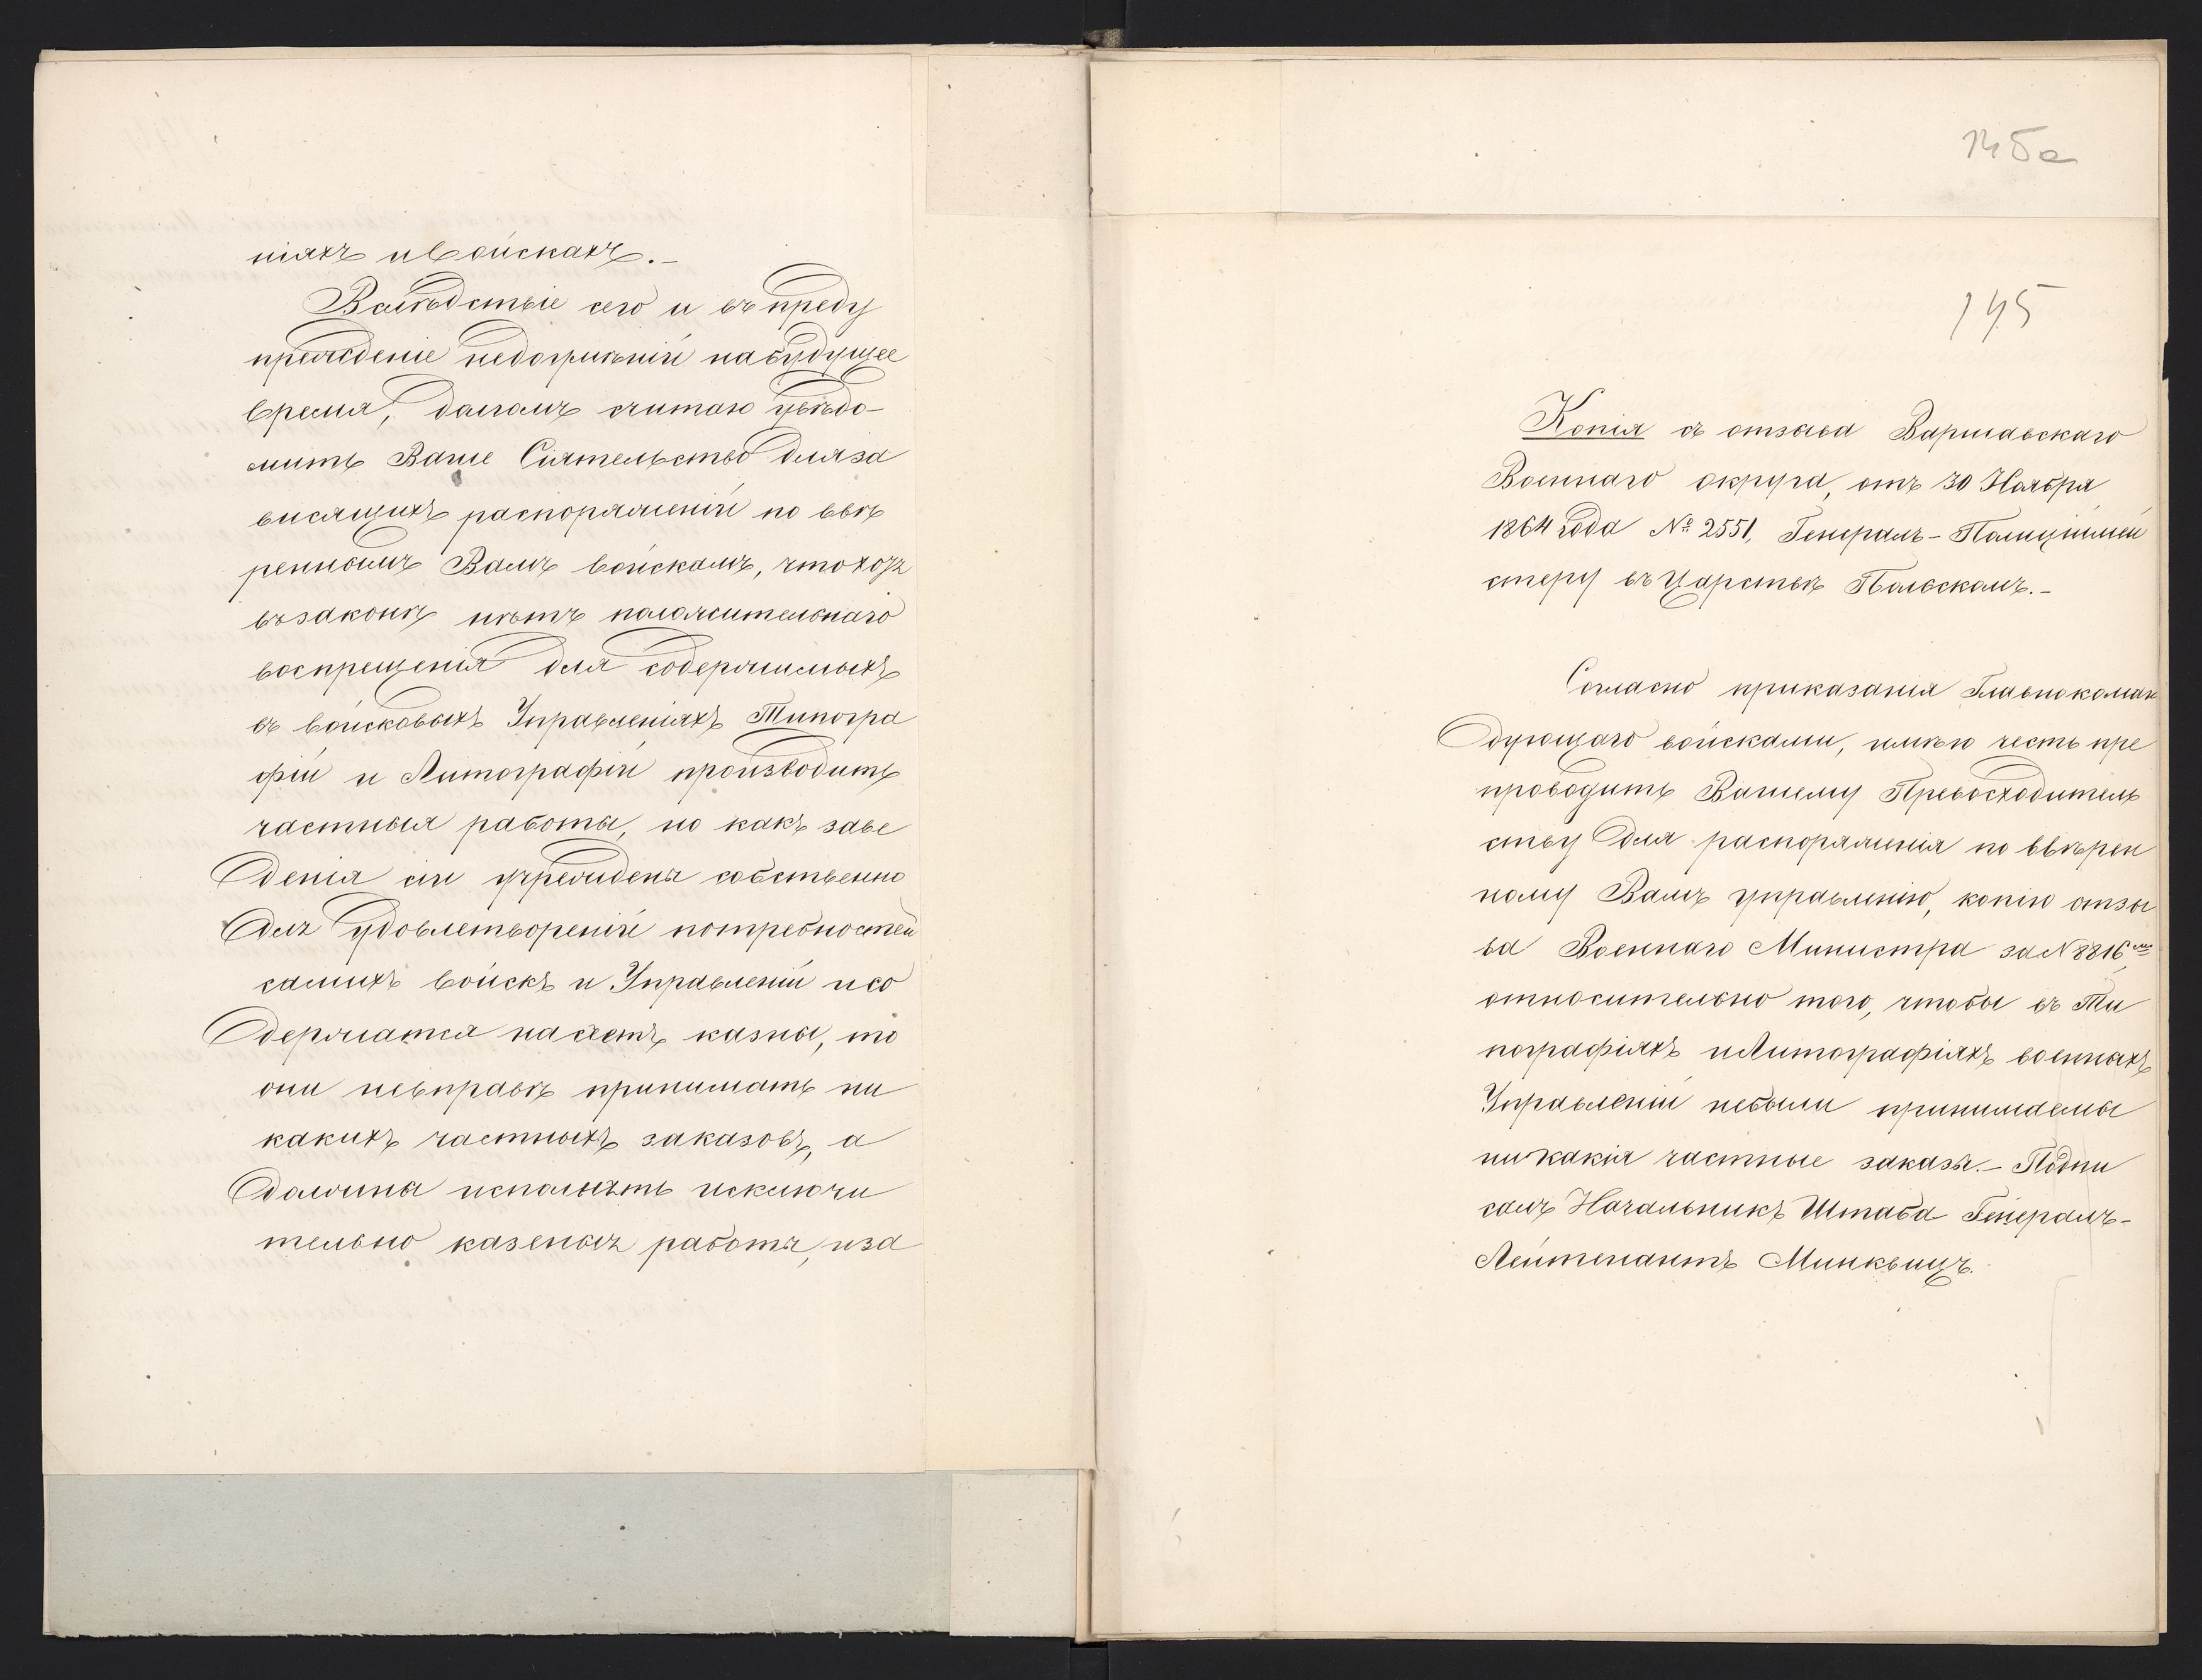 ніяхъ и войскахъ.-
Вслѣдствіе сего и въ преду
прежденіе недоумѣній на будущее
время, долгомъ считаю увѣдо-
мить Ваше Сіятельство для за
висящихъ распоряженій по ввѣ
реннымъ Вамъ войскамъ, что хотя
въ законѣ нѣтъ положительнаго
воспрещенія для содержимыхъ
въ войсковыхъ Управленіяхъ Типогра
фій и Литографій производить
частныя работы, но какъ заве
денія сіи учреждены собственно
для удовлетвореній потребностей
самихъ войскъ и Управленій и со
держатся на счетъ казны, то
они невправѣ принимать ни
какихъ частныхъ заказовъ, а
должны исполнять исключи
тельно казеныя работы, и за
145а
145
Копія съ отзыва Варшавскаго
Военнаго округа, отъ 30 Ноября
1864 года № 2551, Генералъ-Полиціймей
стеру въ Царствѣ Польскомъ.-
Согласно приказанія Главнокоман
дующаго войсками, имѣю честь пре
проводить Вашему Превосходитель
ству для распоряженія по ввѣрен
ному Вамъ управленію, копію отзы
ва Военнаго Министра за N 8816,
относительно того, чтобы въ Ти
пографіяхъ и Литографіяхъ военныхъ
Управленій небыли принимаемы
ни какія частные заказы.- Подпи
салъ Начальникъ Штаба Генералъ-
Лейтенантъ Минквицъ.